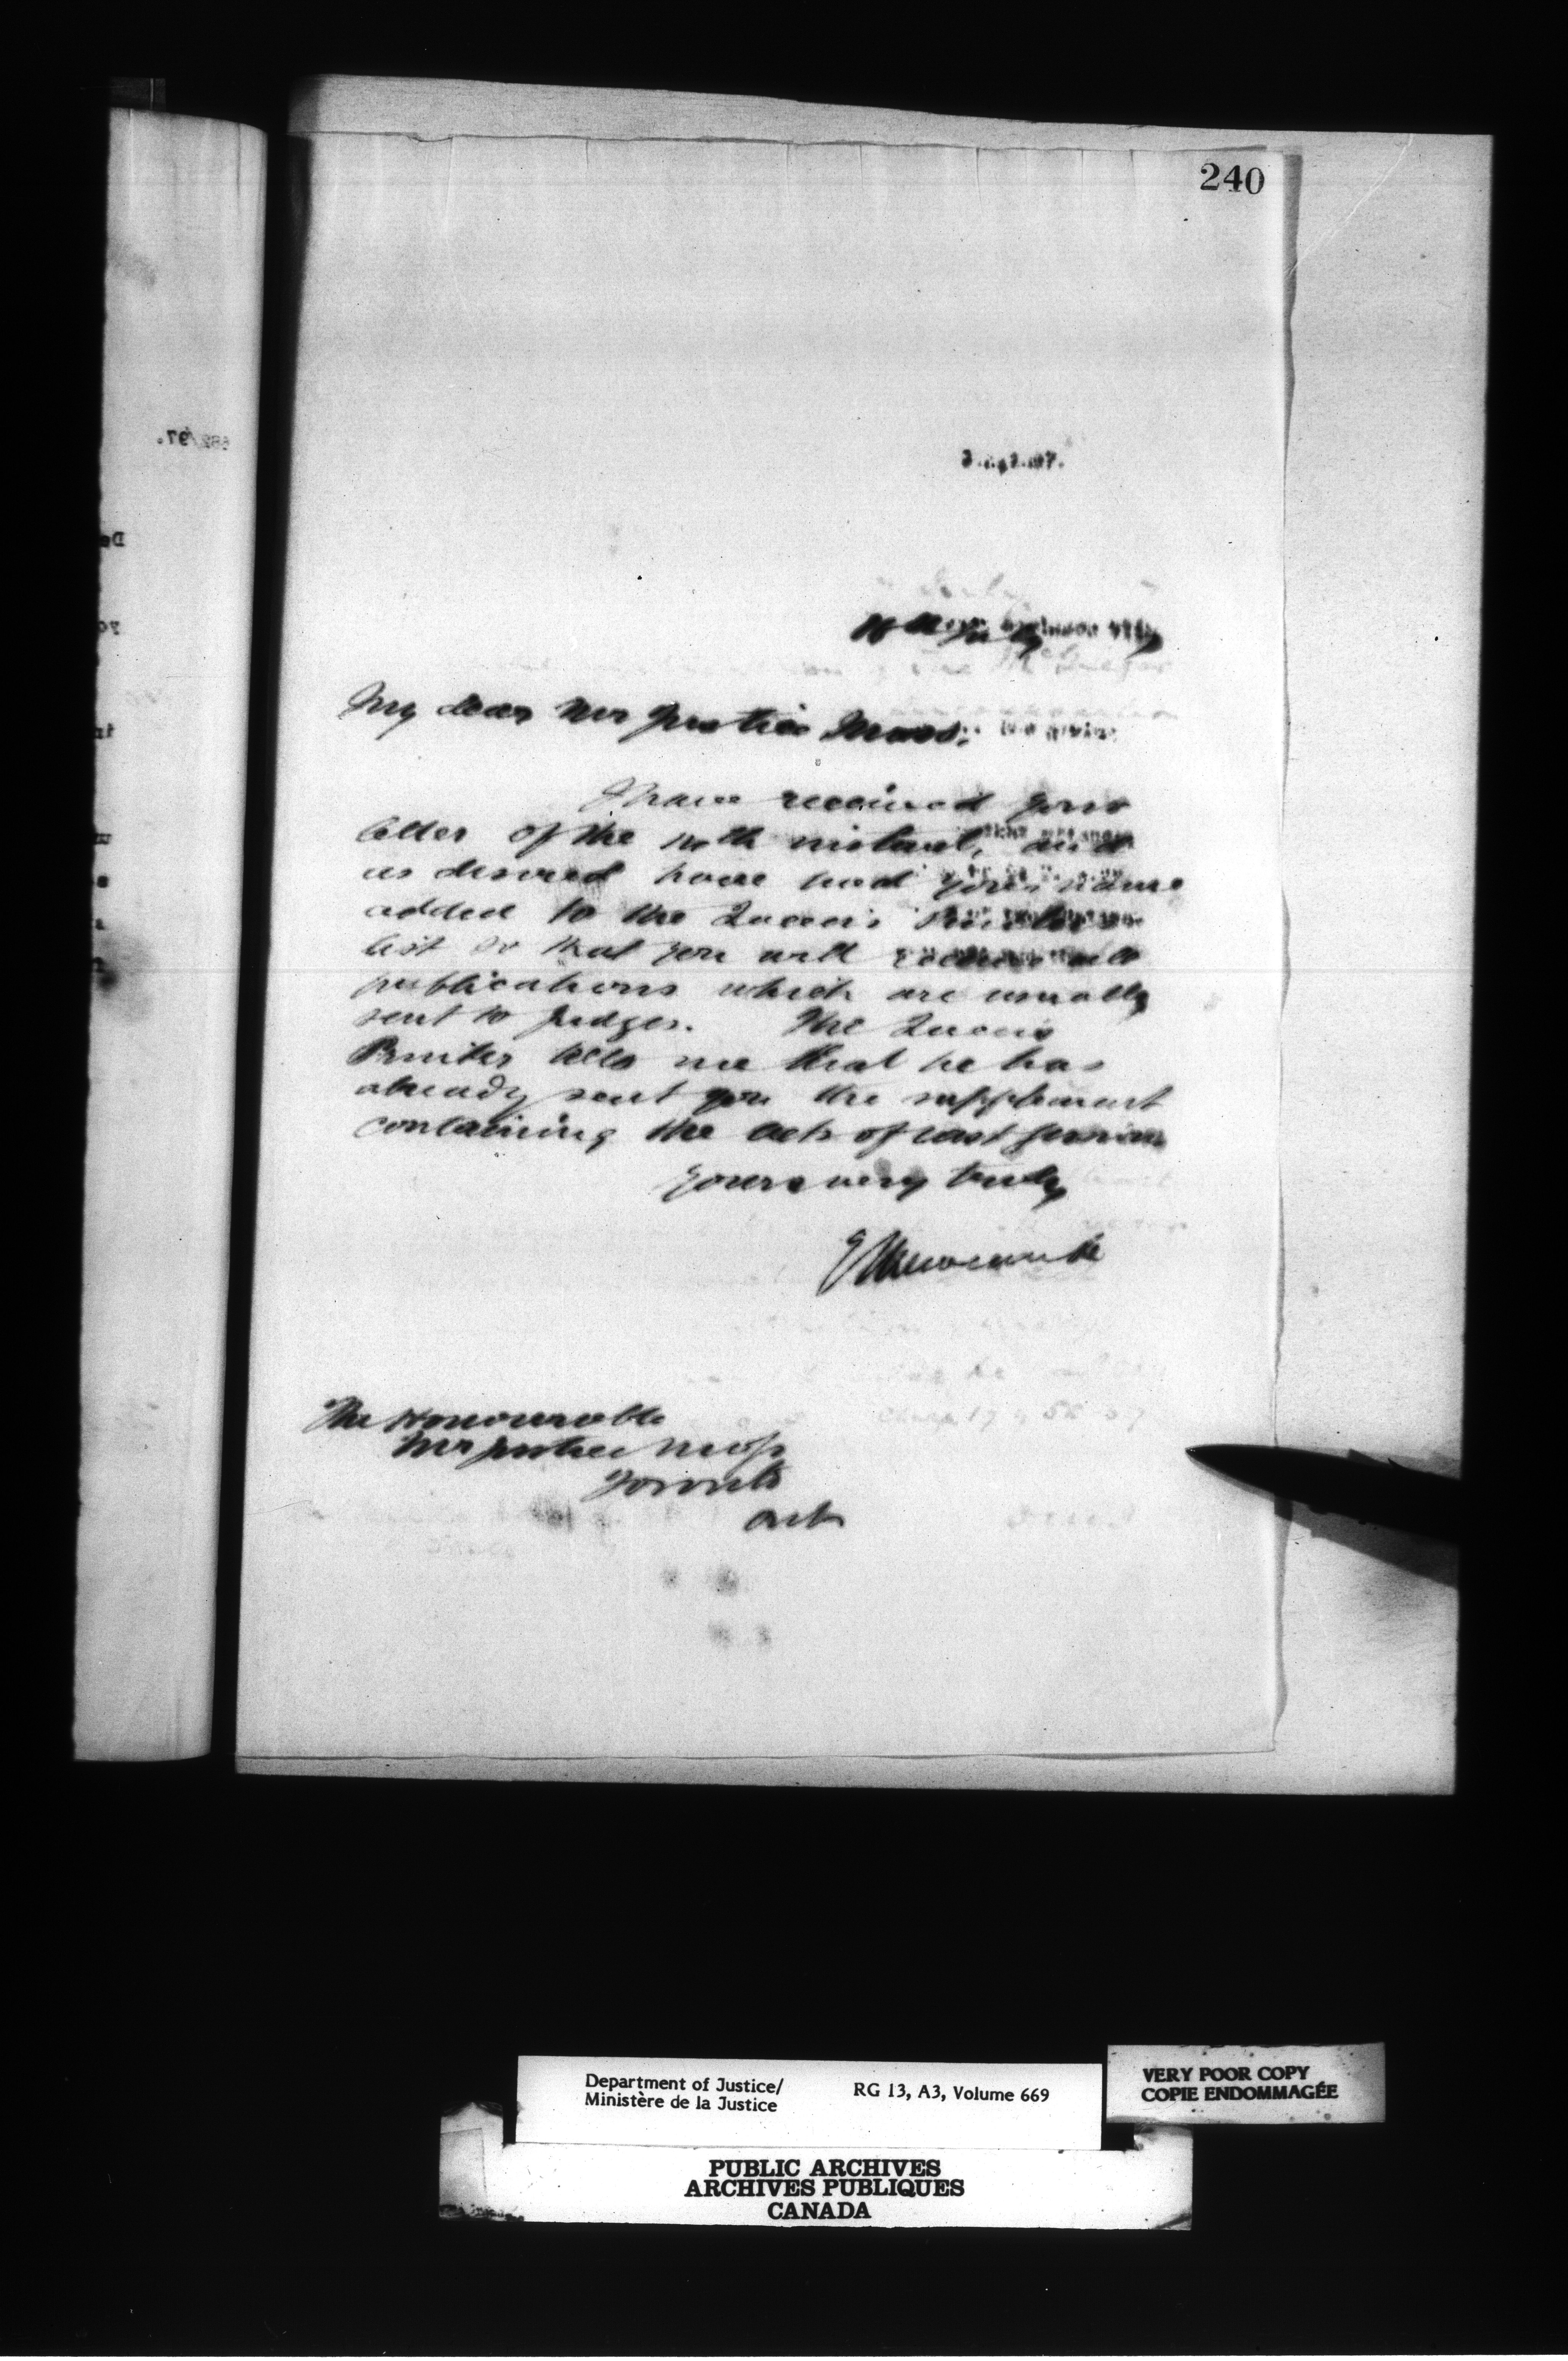 240
My dear Mr Justice Moss.
I have received your
letter of the instant, and
as desired have had your name
added to the Queen's Printers
list so that you will receive all
publications which are usually
sent to Judges. The Queen's
Printer tells me that he has
already sent you the supplement
containing the acts of last session
Yours very truly
E L Newcombe
The Honourable
Mr Justice Moss
Toronto
Ont
Department of Justice/
Ministère de la Justice
RG 13, A3, Volume 669
VERY POOR COPY
COPIE ENDOMMAGÉE
PUBLIC ARCHIVES
ARCHIVES PUBLIQUES
CANADA